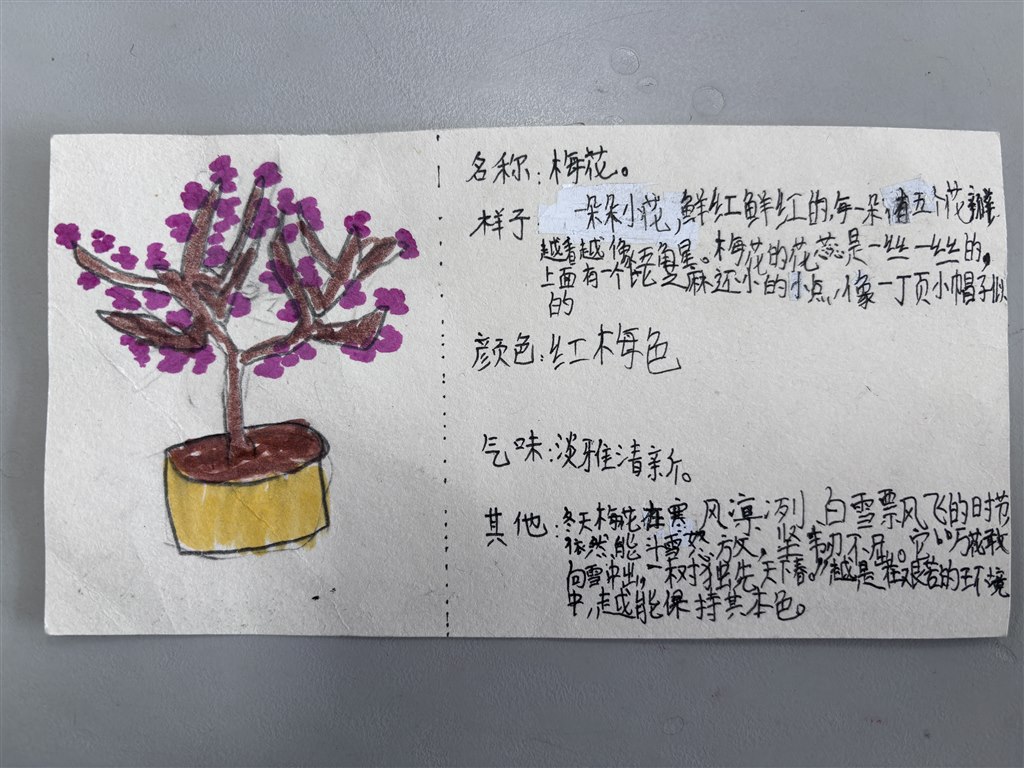 名称:梅花。
样子 一朵朵小花,鲜红鲜红的,每一朵有五个花瓣
越看越像五角星。梅花的花蕊是一丝一丝的,
上面有一个比芝麻还小的小点,像一丁页小帽子似
的
颜色:红梅色
气味:淡雅清新。
其他:冬天梅花在寒风凛冽 白雪票风飞的时节
依然能斗雪怒放,坚韧不屈。它“万花敢
向雪中出,一树独先天下春。”越是在艰苦的王环境
中,越能保持其本色。